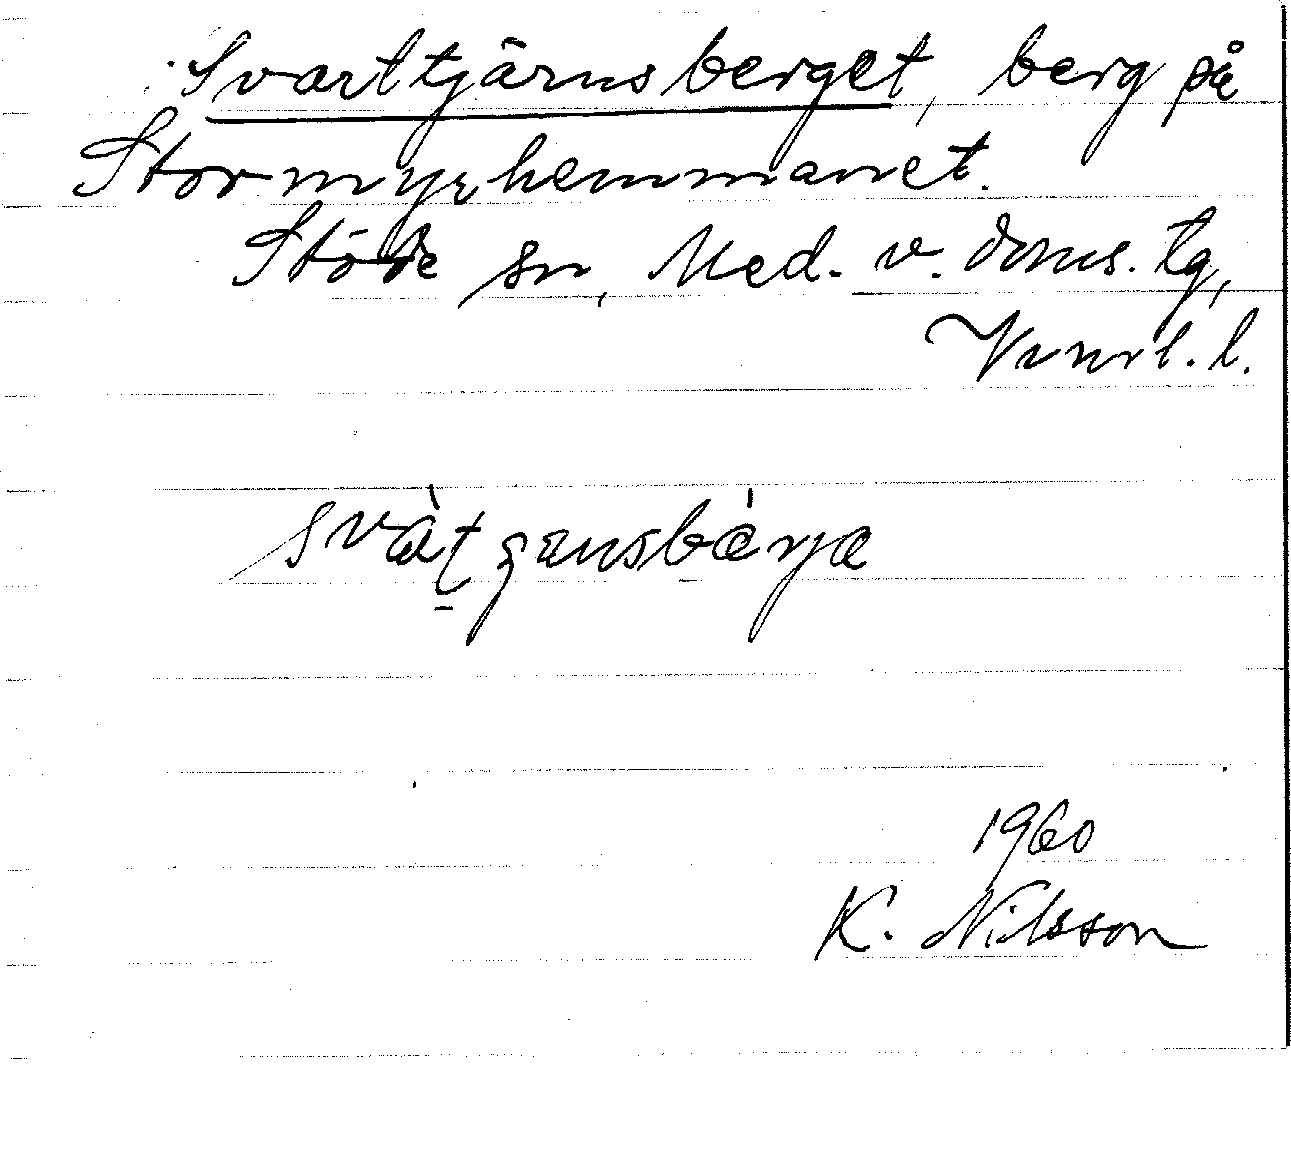 Svarttjärnsberget, berg på
Stormyrhemmanet.
Stöde sn, Med. v. doms. tg,
Vnrl. l.
svàt̠ʒænsbàrjæ
1960
K. Nilsson